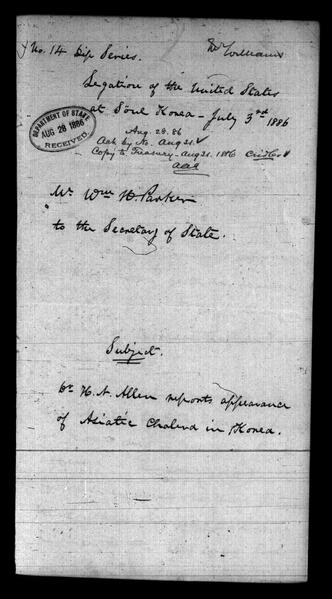 No. 14 Dip Series.
Mr Williams
Legation of the United States
at Soul Korea - July 3rd 1886
DEPARTMENT OF STATE
AUG 28 1886
RECEIVED.
Aug. 28. 86
Ack by No. Aug 31.
Copy to Treasury - Aug 31. 1886
Mr Wm H. Parker
to the Secretary of State.
Subject.
Dr H. N. Allen reports appearance
of Asiatic Cholera in Korea.